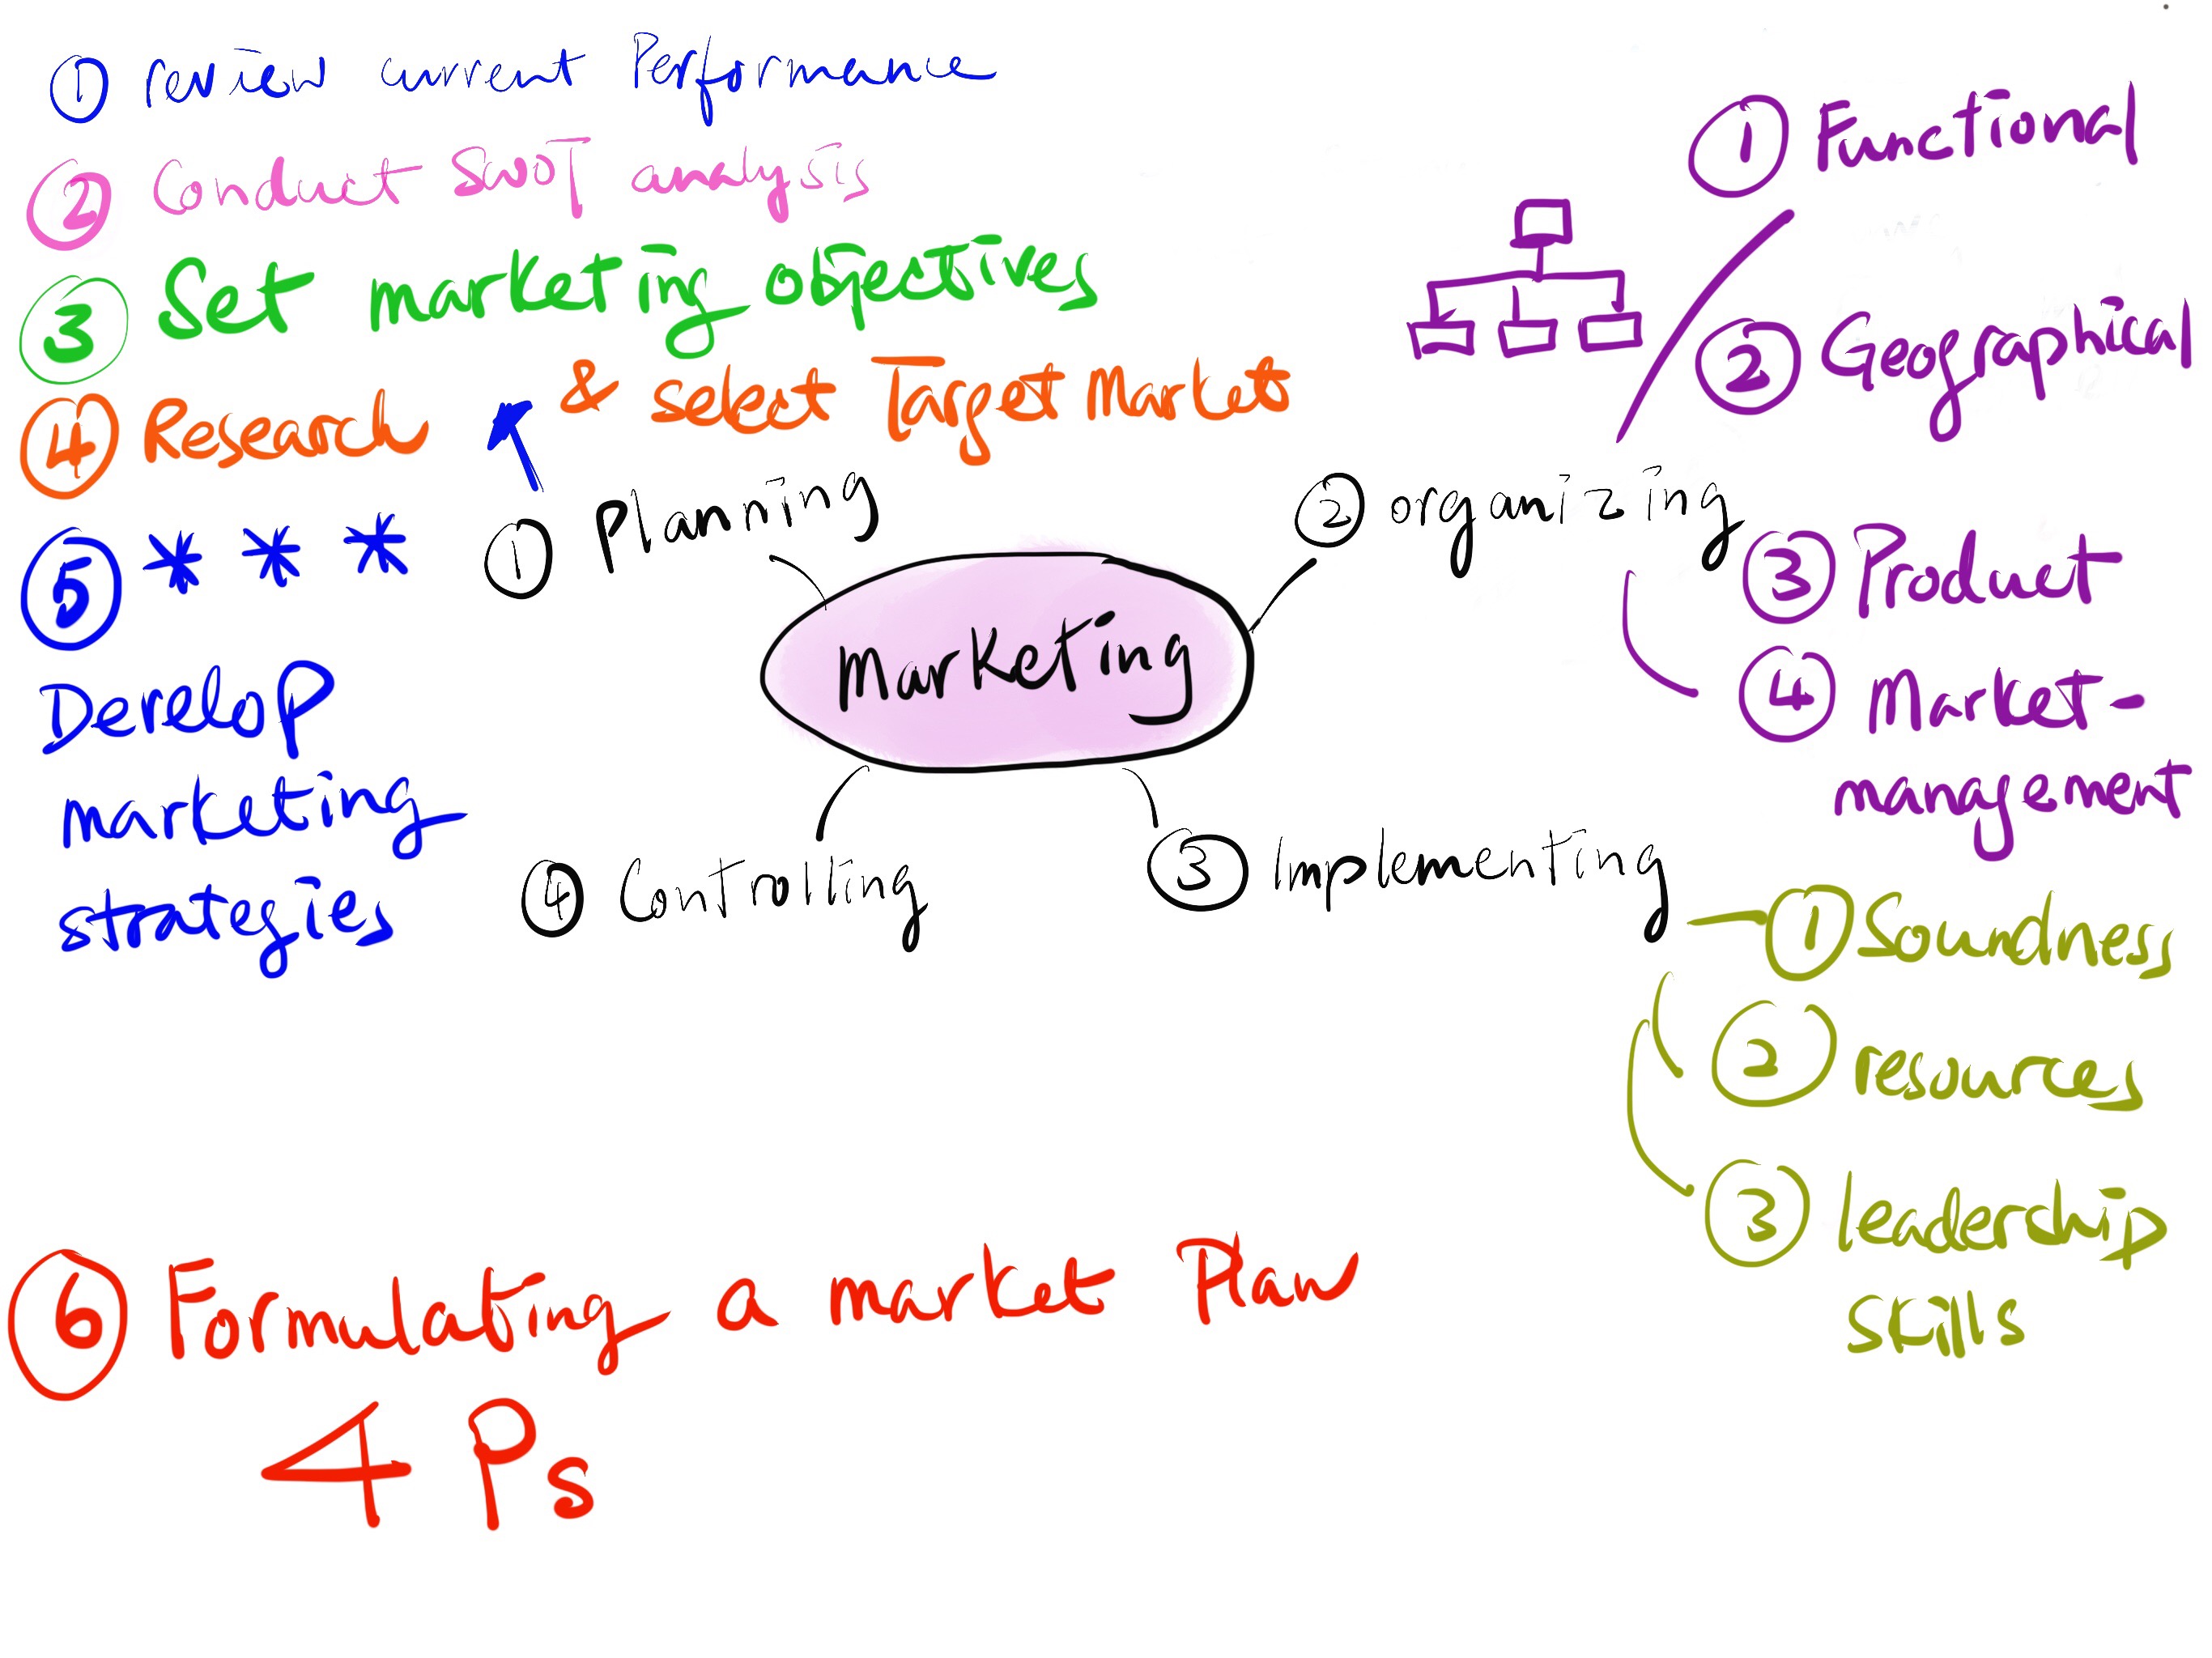 ① review current Performance
② Conduct SWOT analysis
③ Set marketing objectives
④ Research & select Target Market
⑤ * * *
Develop
marketing
strategies
① Planning
② organizing
Marketing
④ Controlling
③ Implementing
① Functional
② Geographical
③ Product
④ Market-
management
① Soundness
② resources
③ leadership
skills
⑥ Formulating a market Plan
4 Ps